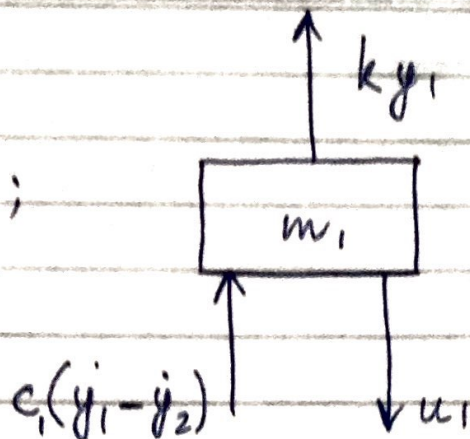 k y₁
;
m₁
c₁(ẏ₁-ẏ₂)
u₁